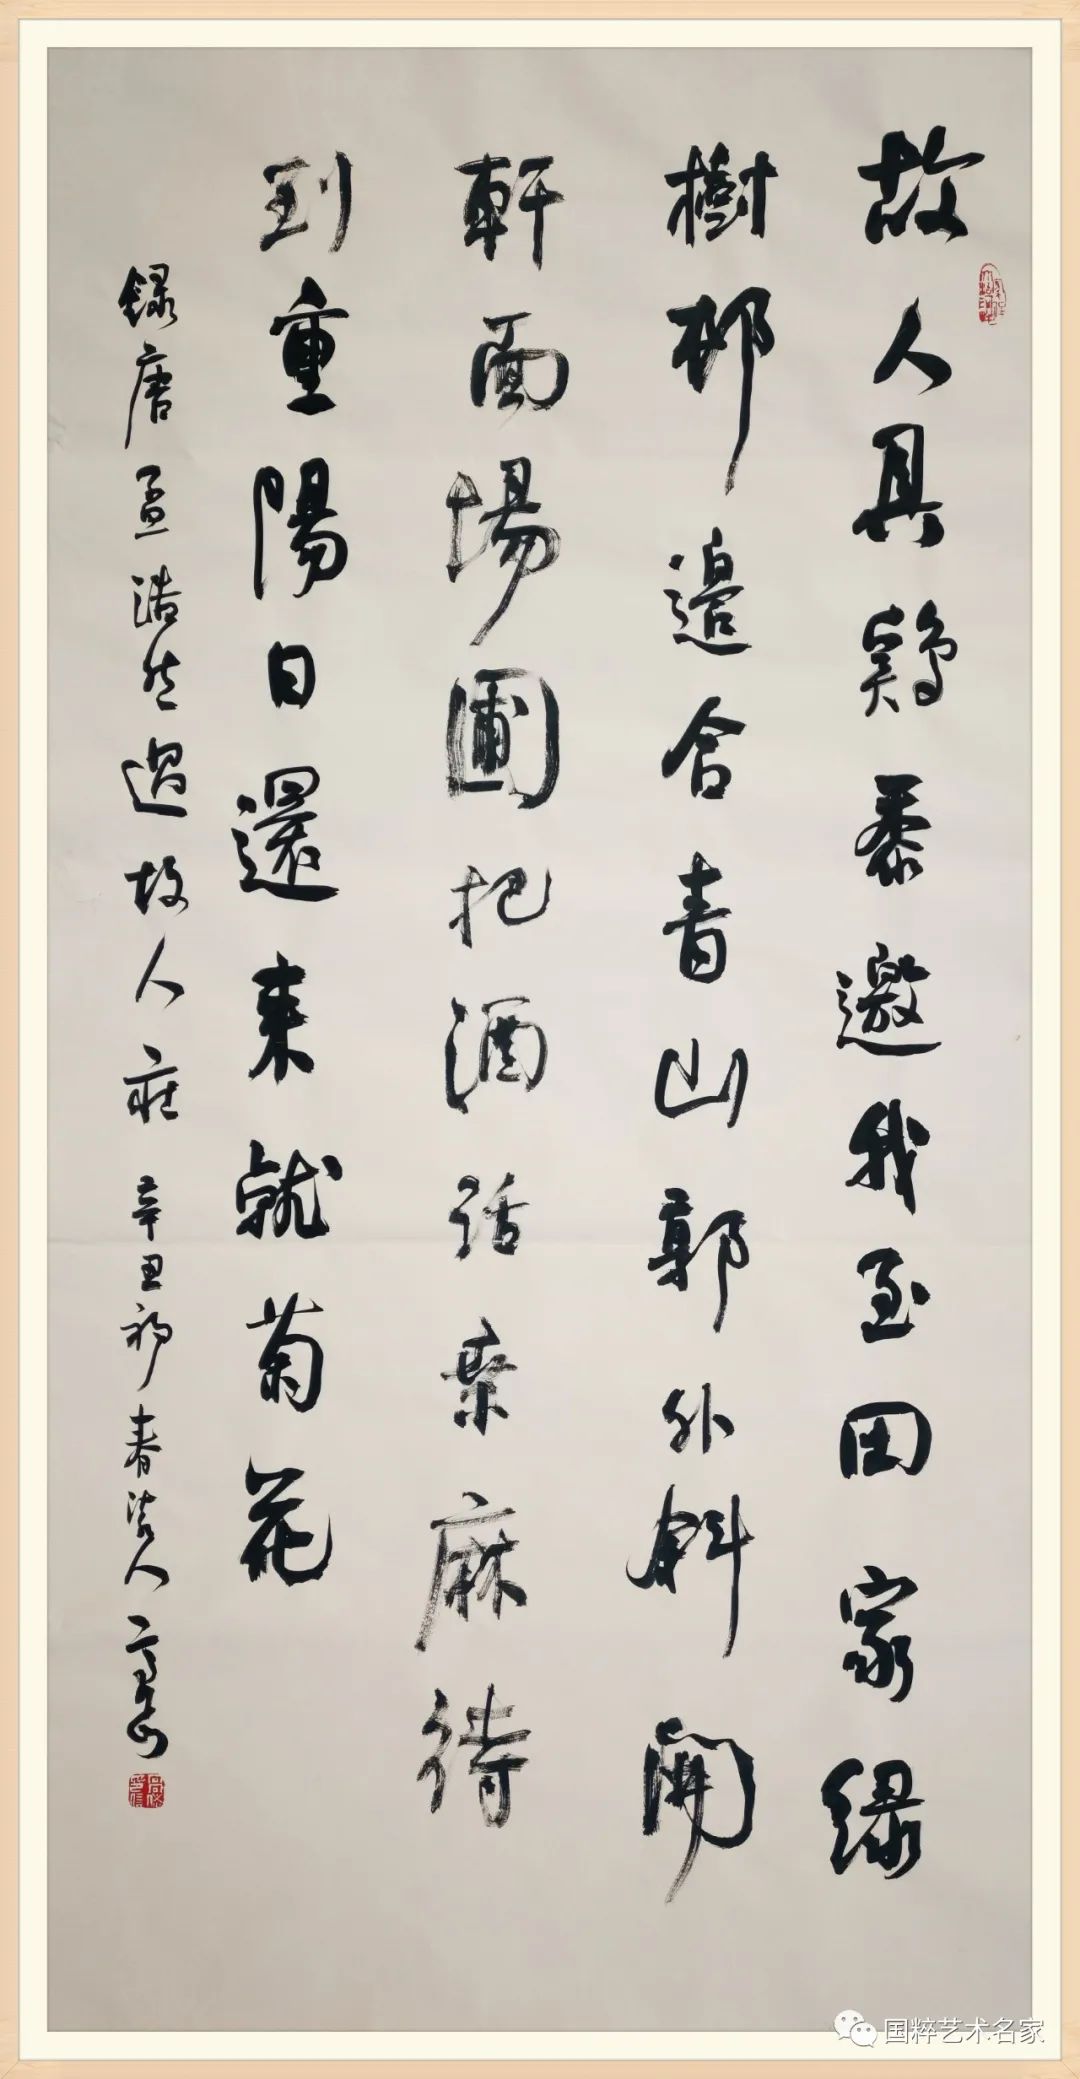 故人具鷄黍邀我至田家绿
樹邨邉合青山郭外斜開
軒面場圃把酒話桒麻待
到重陽日還来就菊花
録唐孟浩然過故人莊 辛丑初春
国粹艺术名家